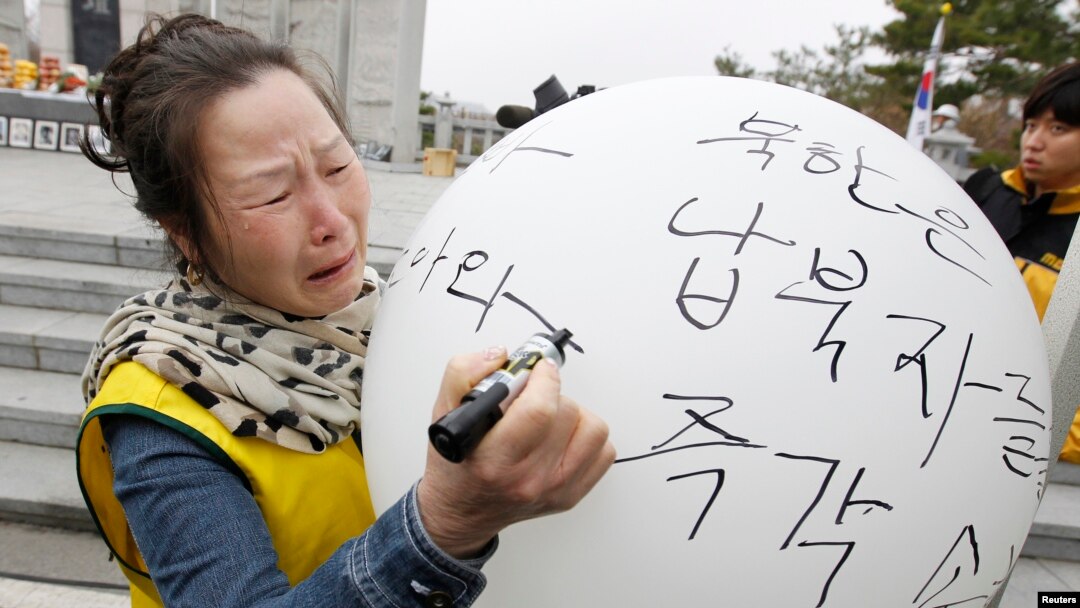 북한은
납북자를
즉각
아와
Reuters